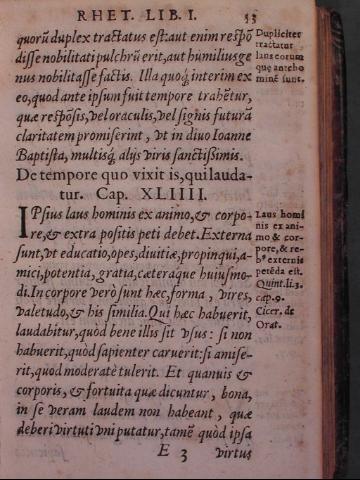 RHET. LIB. I. 53
quorũ duplex tractatus est: aut enim respõ
disse nobilitati pulchrũ erit, aut humilius ge
nus nobilitasse factis. Illa quoq; interim ex
eo, quod ante ipsum fuit tempore trahẽtur,
quæ respõsis, vel oraculis, vel signis futurã
claritatem promiserint, vt in diuo Ioanne
Baptista, multisq; alijs viris sanctissimis.
De tempore quo vixit is, qui lauda-
tur. Cap. XLIIII.
IPsius laus hominis ex animo, & corpo-
re, & extra positis peti debet. Externa
sunt, vt educatio, opes, diuitiæ, propinqui, a-
mici, potentia, gratia, cæteraque huiusmo-
di. In corpore verò sunt hæc, forma, vires,
valetudo, & his similia. Qui hæc habuerit,
laudabitur, quòd bene illis sit vsus: si non
habuerit, quòd sapienter caruerit: si amise-
rit, quod moderatè tulerit. Et quanuis &
corporis, & fortuita quæ dicuntur, bona,
in se veram laudem non habeant, quæ
deberi virtuti vni putatur, tamẽ quòd ipsa
E 3 virtus
Dupliciter
tractatur
laus eorum
quę ante ho
minẽ sunt.
Laus homi
nis ex ani-
mo & cor-
pore, & re-
bꝰ externis
petẽda est.
Quint. li. 3.
cap. 9.
Cicer. de
Orat.